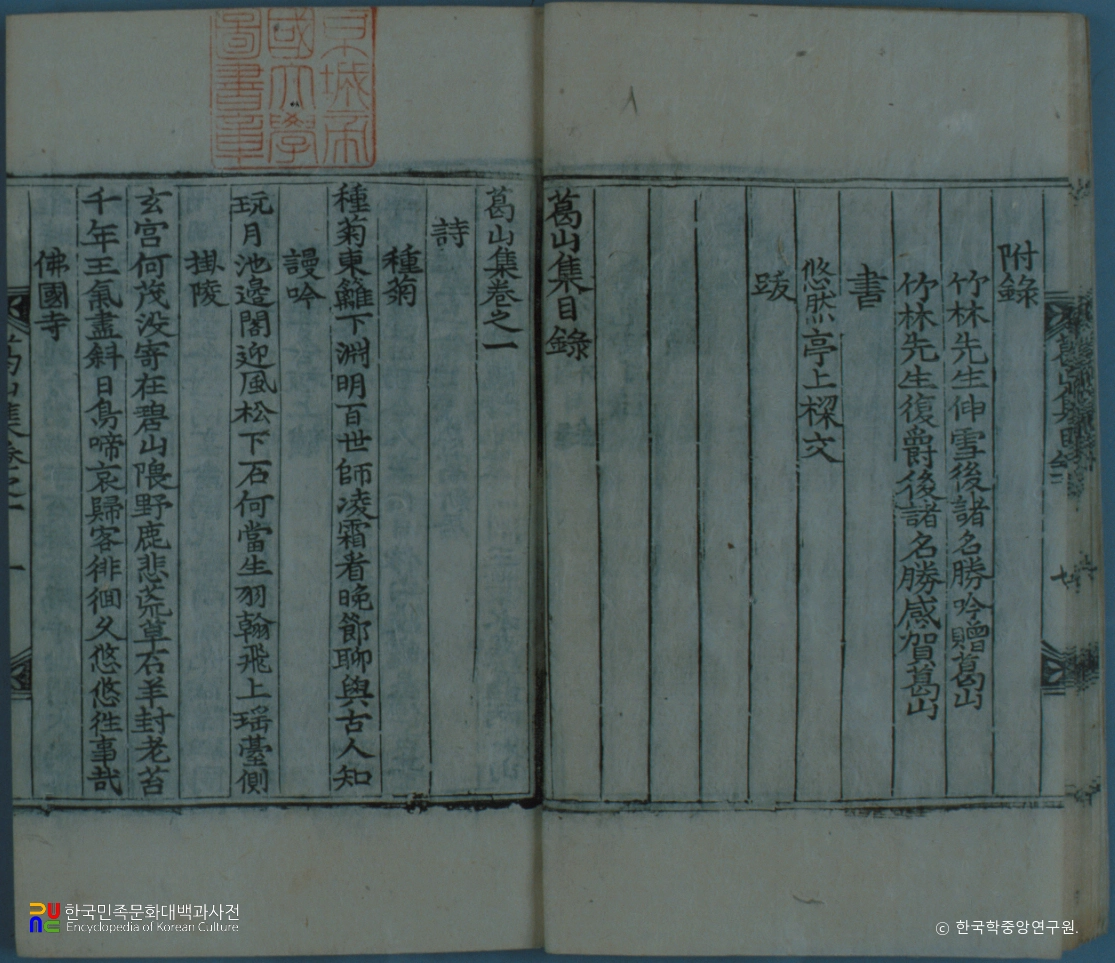 附錄
竹林先生伸雪後諸名勝吟贈葛山
竹林先生復爵後諸名勝感賀葛山
書
悠然亭上樑文
跋
葛山集目錄
葛山集卷之一
詩
種菊
種菊東籬下淵明百世師凌霜看晚節聊與古人知
謾吟
玩月池邊閣迎風松下石何當生羽翰飛上瑤臺側
掛陵
玄宮何茂没寄在碧山隈野鹿悲荒草石羊封老苔
千年王氣盡斜日鳥啼哀歸客徘徊久悠悠徃事哉
佛國寺
葛山集卷之一
一
京城帝
國大學
圖書章
한국민족문화대백과사전
Encyclopedia of Korean Culture
ⓒ 한국학중앙연구원.